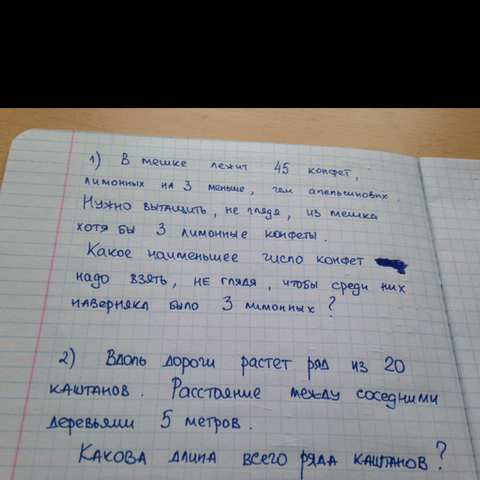 1) В мешке лежит 45 конфет,
лимонных на 3 меньше, чем апельсиновых.
Нужно вытащить, не глядя, из мешка
хотя бы 3 лимонные конфеты.
Какое наименьшее число конфет
надо взять, не глядя, чтобы среди них
наверняка было 3 лимонных?
2) Вдоль дороги растет ряд из 20
каштанов. Расстояние между соседними
деревьями 5 метров.
Какова длина всего ряда каштанов?